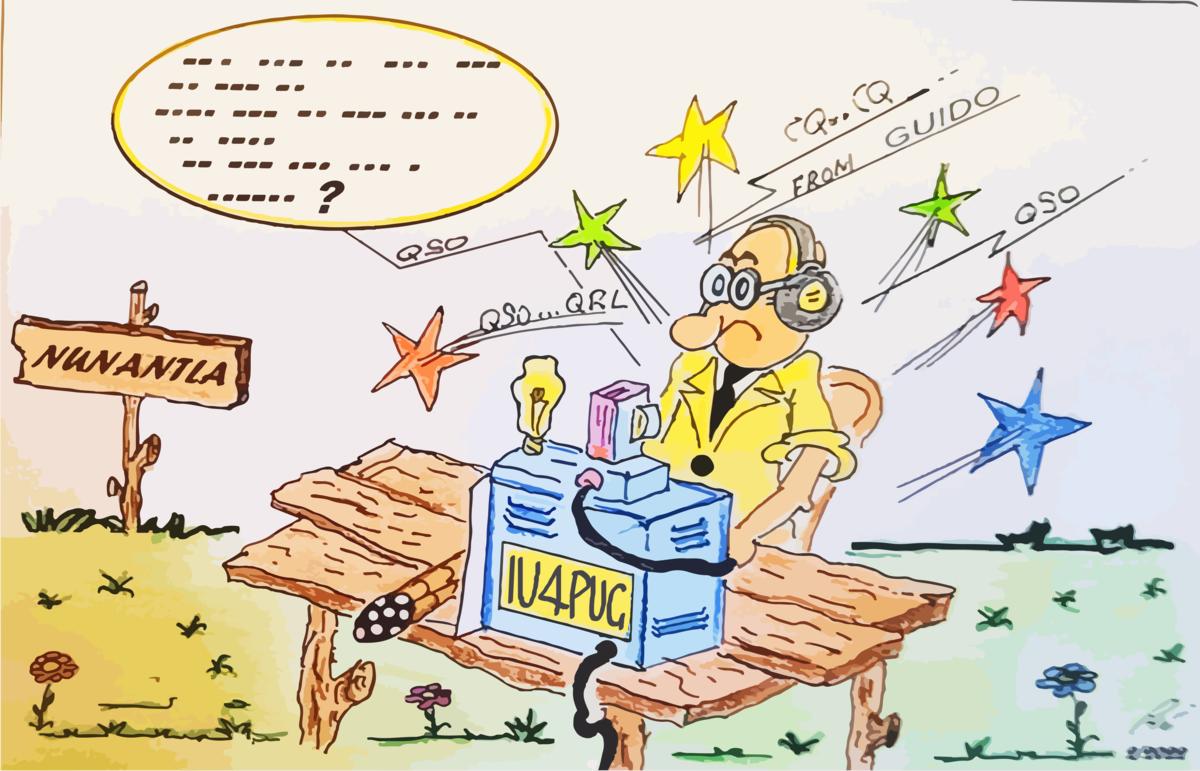 ?
CQ... CQ
FROM GUIDO
QSO
QSO
QSO...QRL
NUNANTLA
IU4PUG